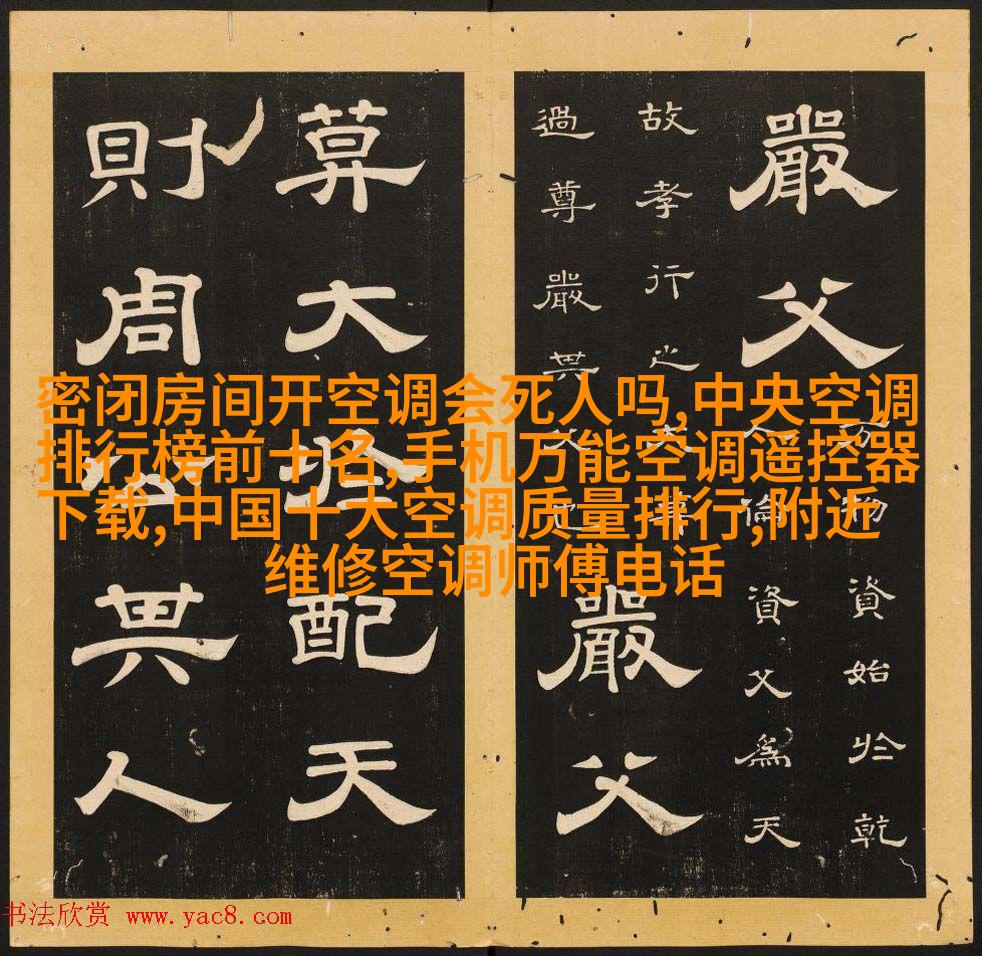 密闭房间开空调会死人吗,中央空调
排行榜前十名,手机万能空调遥控器
下载,中国十大空调质量排行,附近
维修空调师傅电话
嚴父
万物資始於乾
人倫資父為天
故孝行之大莫
過尊嚴其父也
嚴父
莫大於配天
則周公其人
书法欣赏 www.yac8.com